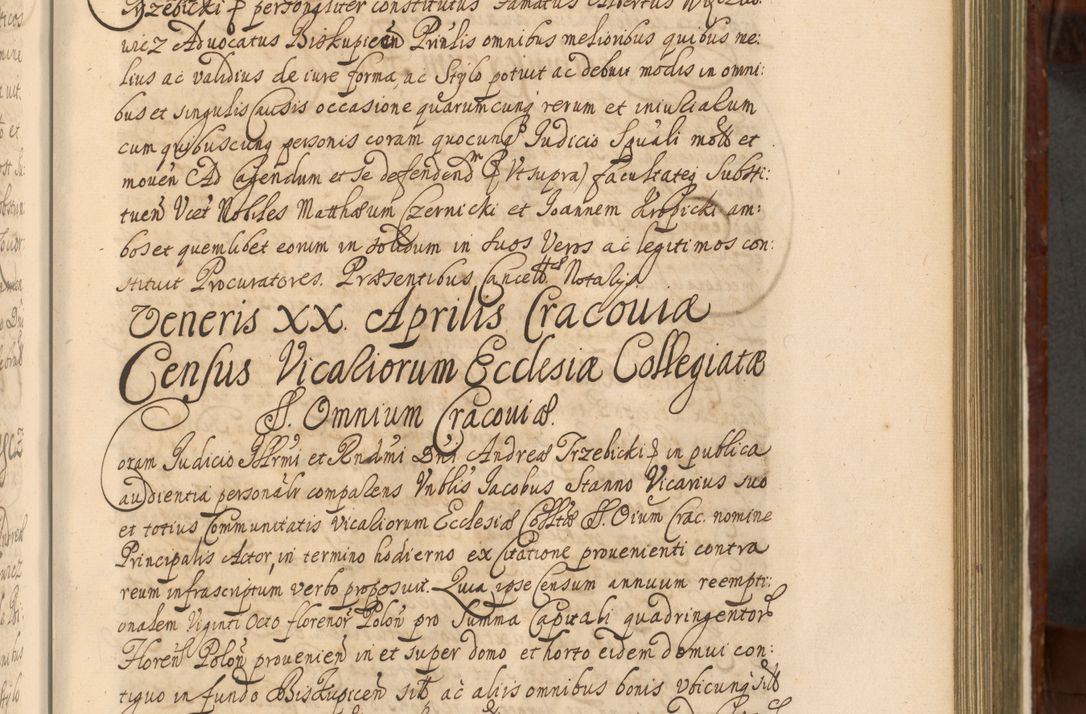 Trzebicki personaliter constitutus Famatus Albertus
wicz Advocatus Biskupicen Prinlis omnibus melioribus quibus me:
lius ac validius de iure forma, ac Stylo potuit ac debuit modis in omni:
bus et singulis Causis occasione quarumcunq rerum et iniuriarum
cum quibuscunq personis coram quocunq Judicio Squali mots et
moven Ad Cagendum et se defendend (Ut supra) facultateq Substi:
tuen Vict Nobiles Matthæum Czernicki et Joannem Kropicki am:
bos et quemlibet eorum in solidum in suos Veros ac legitimos con:
stituit Procuratores. Præsentibus Cancell Notalija
Veneris XX. Aprilis Cracoviæ
Census Vicariorum Ecclesiæ Collegiatæ
SS. Omnium Cracoviæ.
Coram Judicio Illrmi et Rndmi Dni Andreæ Trzebicki in publica
audientia personalr comparens Vnblis Jacobus Stanno Vicarius suo
et totius Communitatis Vicariorum Ecclesiæ Colltæ SS. Oium Crac. nomine
Principalis Actor, in termino hodierno ex Citatione provenienti contra
reum infrascriptum verbo proposuit. Quia ipse Censum annuum reempti:
onalem Viginti Octo florenor Polon pro Summa Capitali quadringentor
Floren Polon provenien in et super domo et horto eidem domui con:
tiguo in fundo Biskupicen sitt ac aliis omnibus bonis vbicunq sitt